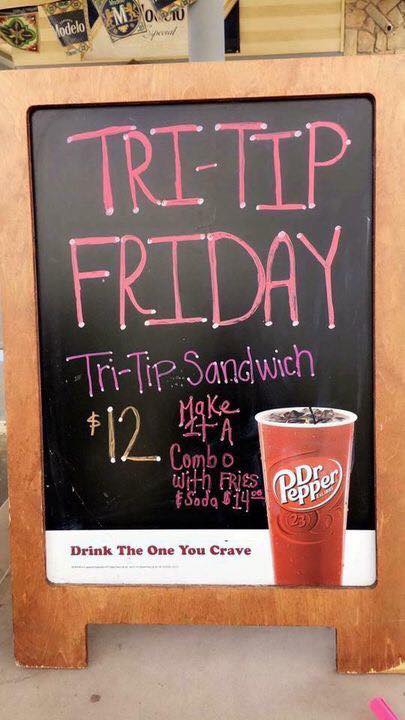 Modelo
Modelo
Especial
TRI-TIP
FRIDAY
Tri-Tip Sandwich
$12
Make
It A
Combo
with Fries
& Soda $14⁰⁰
Dr
Pepper
23
Drink The One You Crave